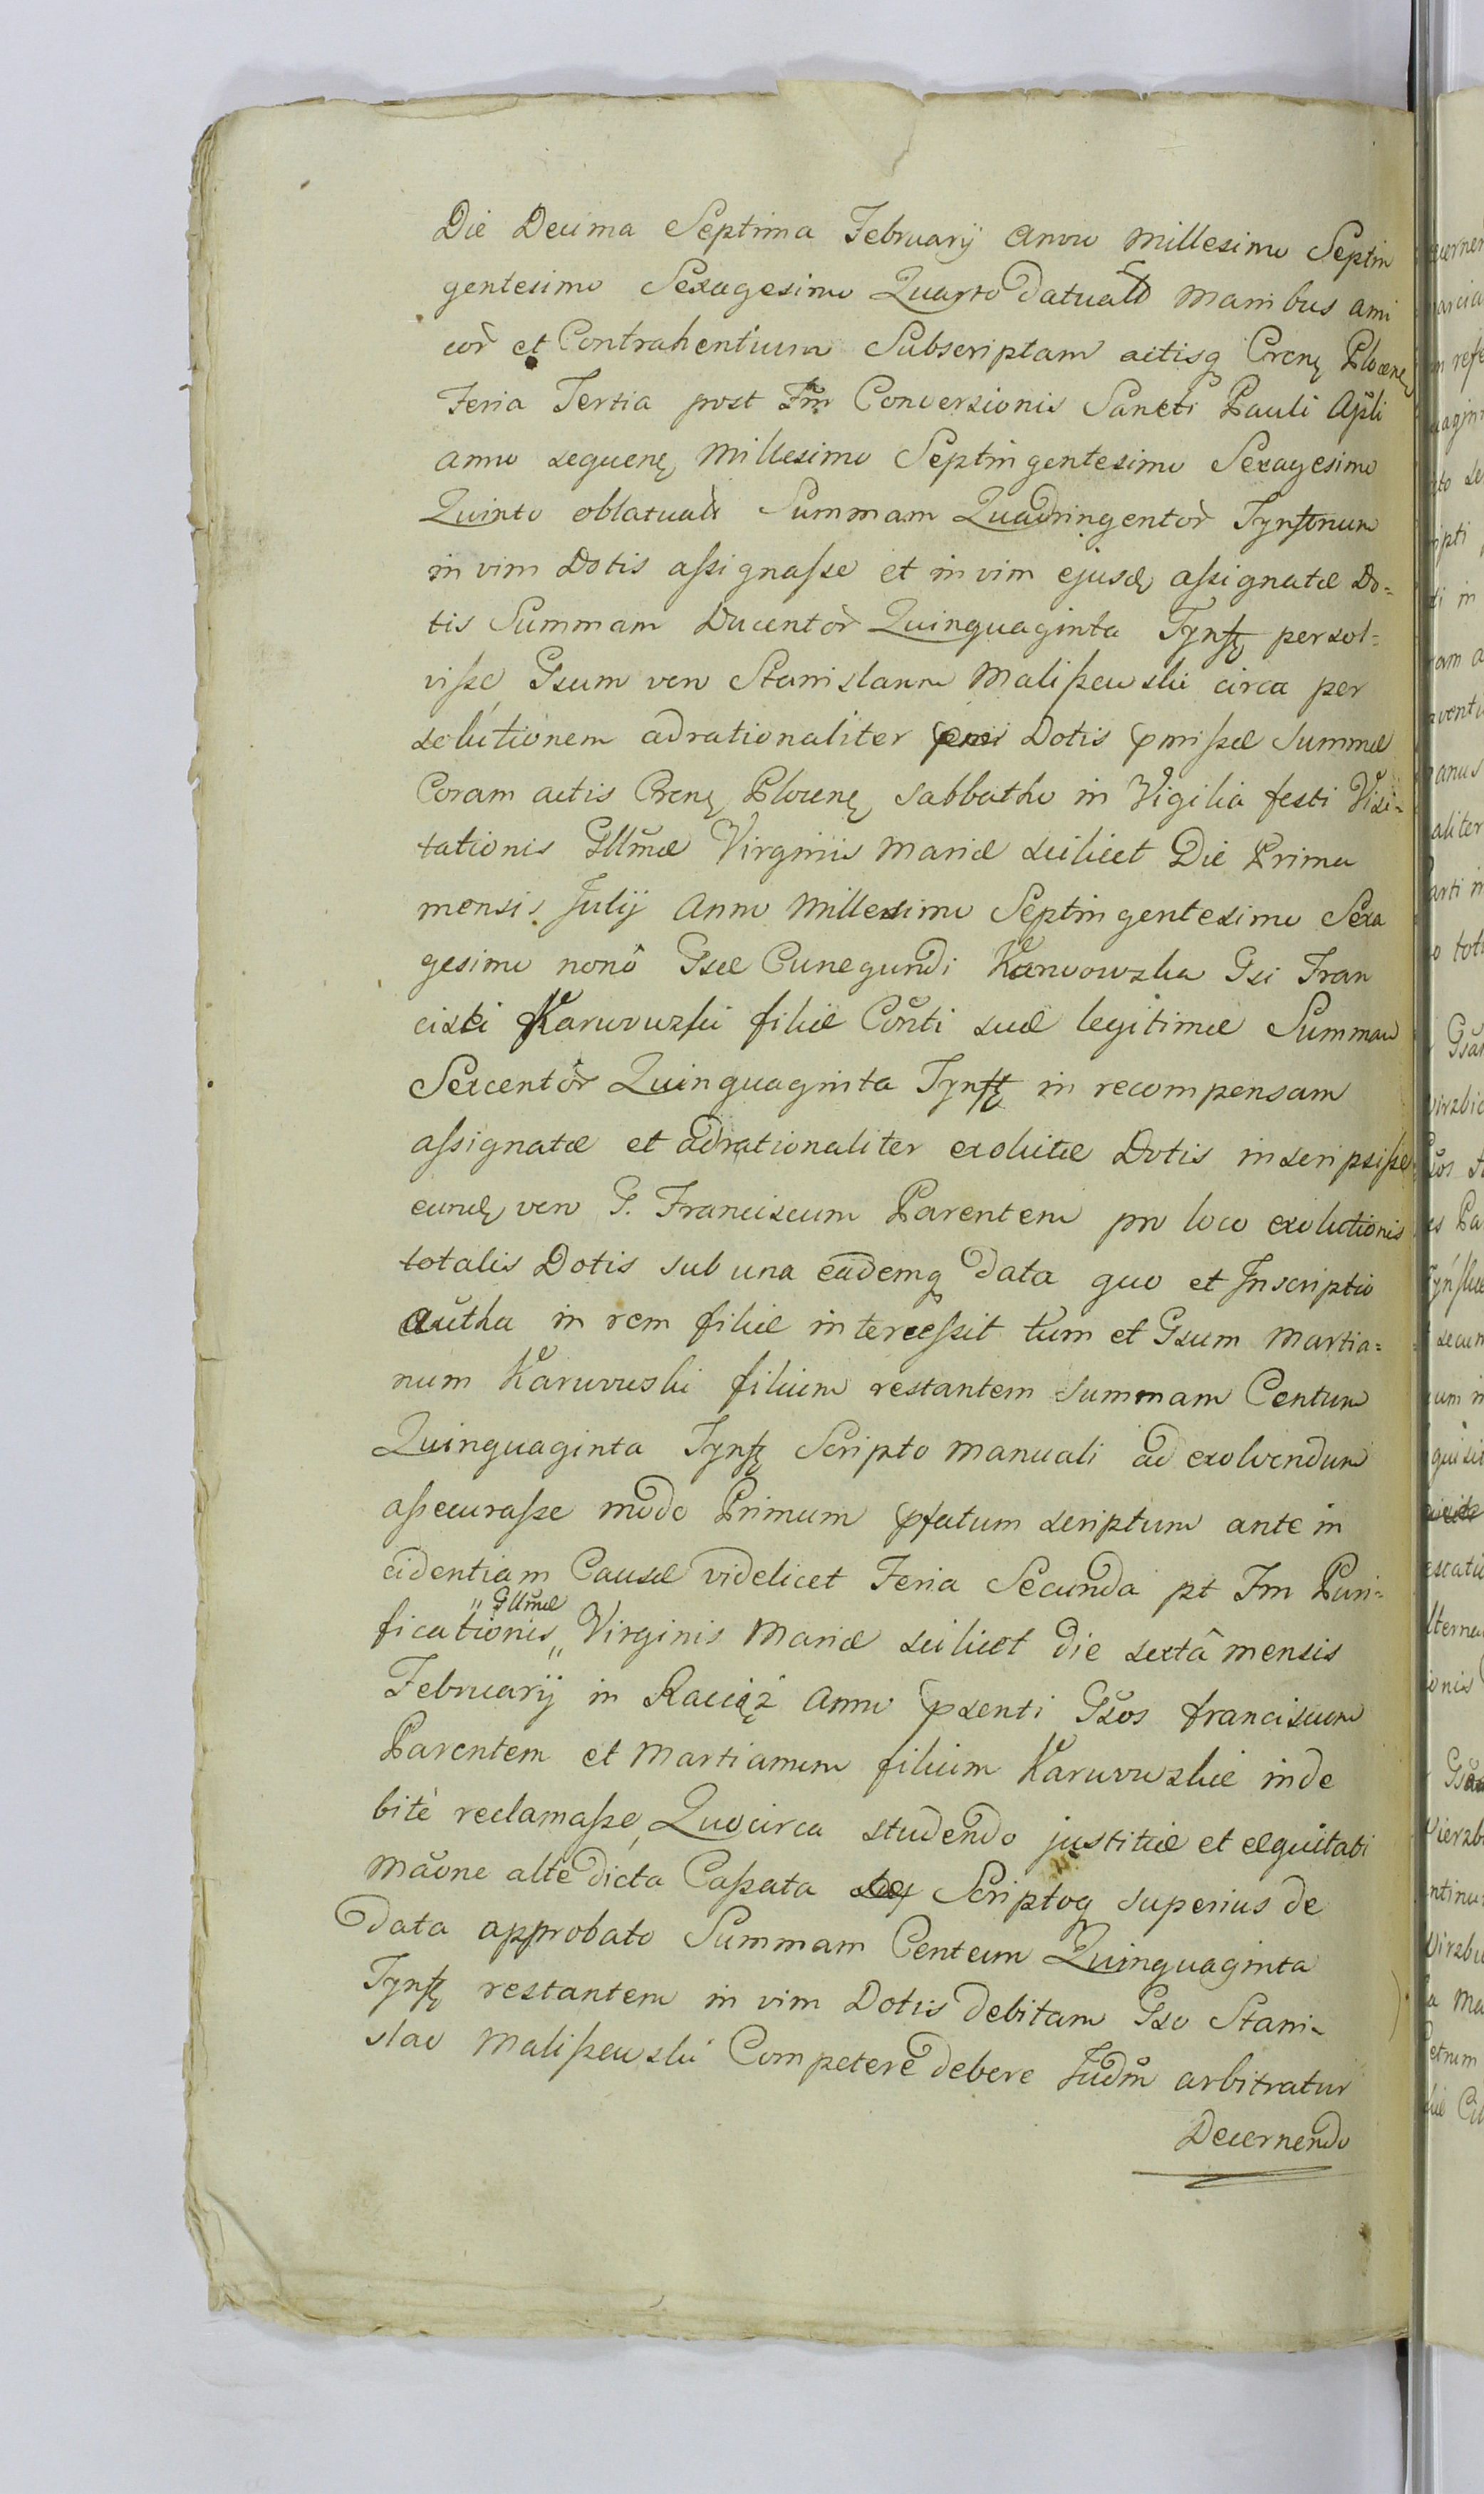 Die Decima Septima Februarij Anno Millesimo Septin
gentesimo Sexagesimo Quarto datuam Manibus ami
cor̃ et Contrahentium Subscriptam actisq Crenę Plocenę
Feria Tertia post Fm̃ Conversionis Sancti Pauli Apl̃i
anno sequenę Millesimo Septingentesimo Sexagesimo
Quinto oblatuam Summam Quadringentor̃ Tynfonum
in vim Dotis assignasse et in vim ejusdę assignatæ Do=
tis Summam Ducentor̃ Quinquaginta Tynfę persol=
visse, Gsum vero Stanislaum Maliszewski circa per
solutionem adrationaliter Dotis pmissæ Summæ
Coram actis Crenę Plocenę Sabbatho in Vigilia festi Visi=
tationis Gllm̃æ Virginis Mariæ scilicet Die Prima
mensis Julij Anno Millesimo Septingentesimo Sexa
gesimo nonô Gsæ Cunegundi Karwowzka Gsi Fran
ciski Karwowzki filiæ Con̑ti suæ legitimæ Summam
Sexcentor̃ Quinquaginta Tynfę in recompensam
assignatæ et adrationaliter exolutæ Dotis inscripsisse
eundę vero G. Franciscum Parentem pro loco exolutionis
totalis Dotis sub una eademq data quo et Inscriptio
autha in rem filiæ intercessit tum et Gsum Martia=
num Karwowski filium restantem summam Centum
Quinquaginta Tynfę Scripto manuali ad exolvendum
assecurasse modo Primum pfatum scriptum ante in
cidentiam Causæ videlicet Feria Secunda pt Fm Puri=
ficationis " Gllm̃æ " Virginis Mariæ scilicet die sextâ mensis
Februarij in Raciąż Anno psenti Gsos franciscum
Parentem et Martianum filium Karwowzkie inde
bitè reclamasse, Quocirca studendo justitiæ et æquitati
maõne altè dicta Cassata Scriptoq superius de
data approbato Summam Centum Quinquaginta
Tynfę restantem in vim Dotis debitam Gso Stani=
slao Maliszewski Competere debere Judm̃ arbitratur
Decernendo